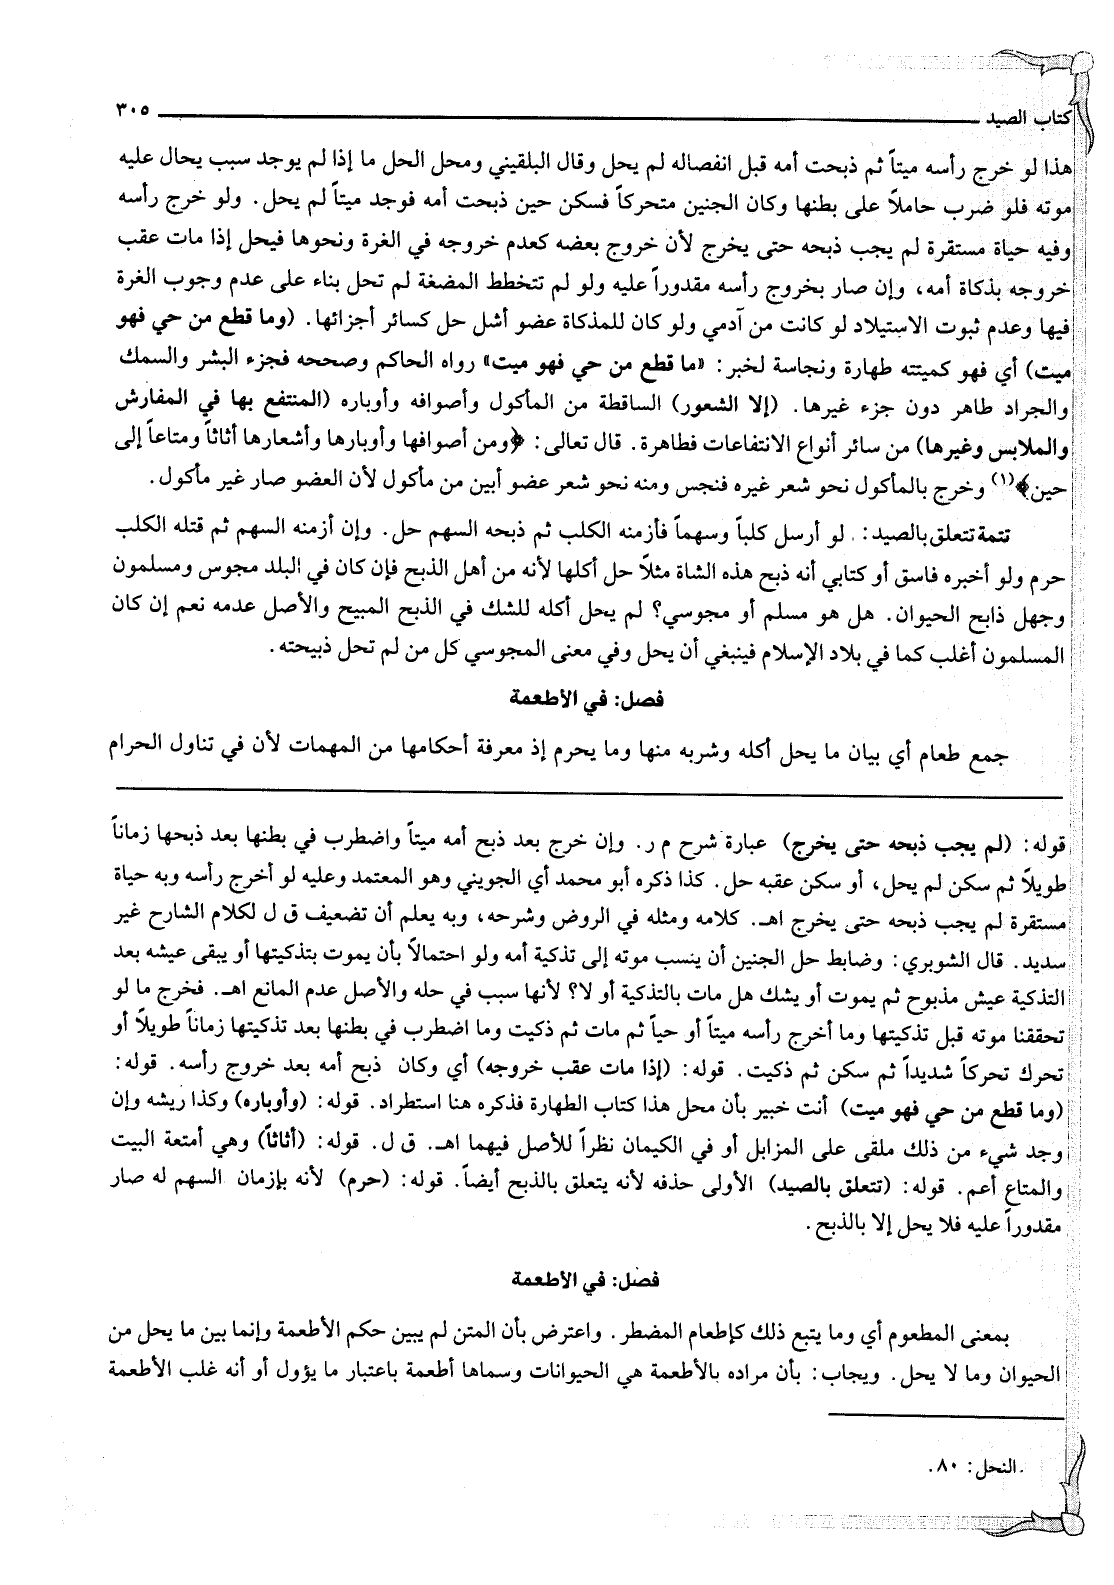 كتاب الصيد ٣٠٥
هذا لو خرج رأسه ميتاً ثم ذبحت أمه قبل انفصاله لم يحل وقال البلقيني ومحل الحل ما إذا لم يوجد سبب يحال عليه
موته فلو ضرب حاملاً على بطنها وكان الجنين متحركاً فسكن حين ذبحت أمه فوجد ميتاً لم يحل. ولو خرج رأسه
وفيه حياة مستقرة لم يجب ذبحه حتى يخرج لأن خروج بعضه كعدم خروجه في الغرة ونحوها فيحل إذا مات عقب
خروجه بذكاة أمه، وإن صار بخروج رأسه مقدوراً عليه ولو لم تتخطط المضغة لم تحل بناء على عدم وجوب الغرة
فيها وعدم ثبوت الاستيلاد لو كانت من آدمي ولو كان للمذكاة عضو أشل حل كسائر أجزائها. (وما قطع من حي فهو
ميت) أي فهو كميتته طهارة ونجاسة لخبر: «ما قطع من حي فهو ميت» رواه الحاكم وصححه فجزء البشر والسمك
والجراد طاهر دون جزء غيرها. (إلا الشعور) الساقطة من المأكول وأصوافه وأوباره (المنتفع بها في المفارش
والملابس وغيرها) من سائر أنواع الانتفاعات فطاهرة. قال تعالى: ﴿ومن أصوافها وأوبارها وأشعارها أثاثاً ومتاعاً إلى
حين﴾(١) وخرج بالمأكول نحو شعر غيره فنجس ومنه نحو شعر عضو أبين من مأكول لأن العضو صار غير مأكول.
تتمة تتعلق بالصيد: لو أرسل كلباً وسهماً فأزمنه الكلب ثم ذبحه السهم حل. وإن أزمنه السهم ثم قتله الكلب
حرم ولو أخبره فاسق أو كتابي أنه ذبح هذه الشاة مثلاً حل أكلها لأنه من أهل الذبح فإن كان في البلد مجوس ومسلمون
وجهل ذابح الحيوان. هل هو مسلم أو مجوسي؟ لم يحل أكله للشك في الذبح المبيح والأصل عدمه نعم إن كان
المسلمون أغلب كما في بلاد الإسلام فينبغي أن يحل وفي معنى المجوسي كل من لم تحل ذبيحته.
فصل: في الأطعمة
جمع طعام أي بيان ما يحل أكله وشربه منها وما يحرم إذ معرفة أحكامها من المهمات لأن في تناول الحرام
قوله: (لم يجب ذبحه حتى يخرج) عبارة شرح م ر. وإن خرج بعد ذبح أمه ميتاً واضطرب في بطنها بعد ذبحها زماناً
طويلاً ثم سكن لم يحل، أو سكن عقبه حل. كذا ذكره أبو محمد أي الجويني وهو المعتمد وعليه لو أخرج رأسه وبه حياة
مستقرة لم يجب ذبحه حتى يخرج اهـ. كلامه ومثله في الروض وشرحه، وبه يعلم أن تضعيف ق ل لكلام الشارح غير
سديد. قال الشوبري: وضابط حل الجنين أن ينسب موته إلى تذكية أمه ولو احتمالاً بأن يموت بتذكيتها أو يبقى عيشه بعد
التذكية عيش مذبوح ثم يموت أو يشك هل مات بالتذكية أو لا؟ لأنها سبب في حله والأصل عدم المانع اهـ. فخرج ما لو
تحققنا موته قبل تذكيتها وما أخرج رأسه ميتاً أو حياً ثم مات ثم ذكيت وما اضطرب في بطنها بعد تذكيتها زماناً طويلاً أو
تحرك تحركاً شديداً ثم سكن ثم ذكيت. قوله: (إذا مات عقب خروجه) أي وكان ذبح أمه بعد خروج رأسه. قوله:
(وما قطع من حي فهو ميت) أنت خبير بأن محل هذا كتاب الطهارة فذكره هنا استطراد. قوله: (وأوباره) وكذا ريشه وإن
وجد شيء من ذلك ملقى على المزابل أو في الكيمان نظراً للأصل فيهما اهـ. ق ل. قوله: (أثاثاً) وهي أمتعة البيت
والمتاع أعم. قوله: (تتعلق بالصيد) الأولى حذفه لأنه يتعلق بالذبح أيضاً. قوله: (حرم) لأنه بإزمان السهم له صار
مقدوراً عليه فلا يحل إلا بالذبح.
فصل: في الأطعمة
بمعنى المطعوم أي وما يتبع ذلك كإطعام المضطر. واعترض بأن المتن لم يبين حكم الأطعمة وإنما بين ما يحل من
الحيوان وما لا يحل. ويجاب: بأن مراده بالأطعمة هي الحيوانات وسماها أطعمة باعتبار ما يؤول أو أنه غلب الأطعمة
النحل: ٨٠.